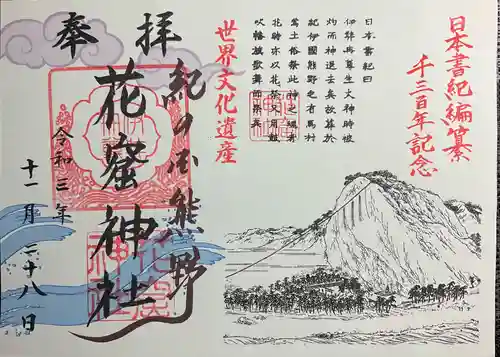 日本書紀編纂
千三百年記念
日本書紀曰
伊弉冉尊生火神時被
灼而神退去矣故葬於
紀伊國熊野之有馬村
焉土俗祭此神之魂者
花時亦以花祭又用鼓
吹幡旗歌舞而祭矣
世界文化遺産
奉拝
紀の国熊野
花窟神社
令和三年
十一月二十八日
花窟神社